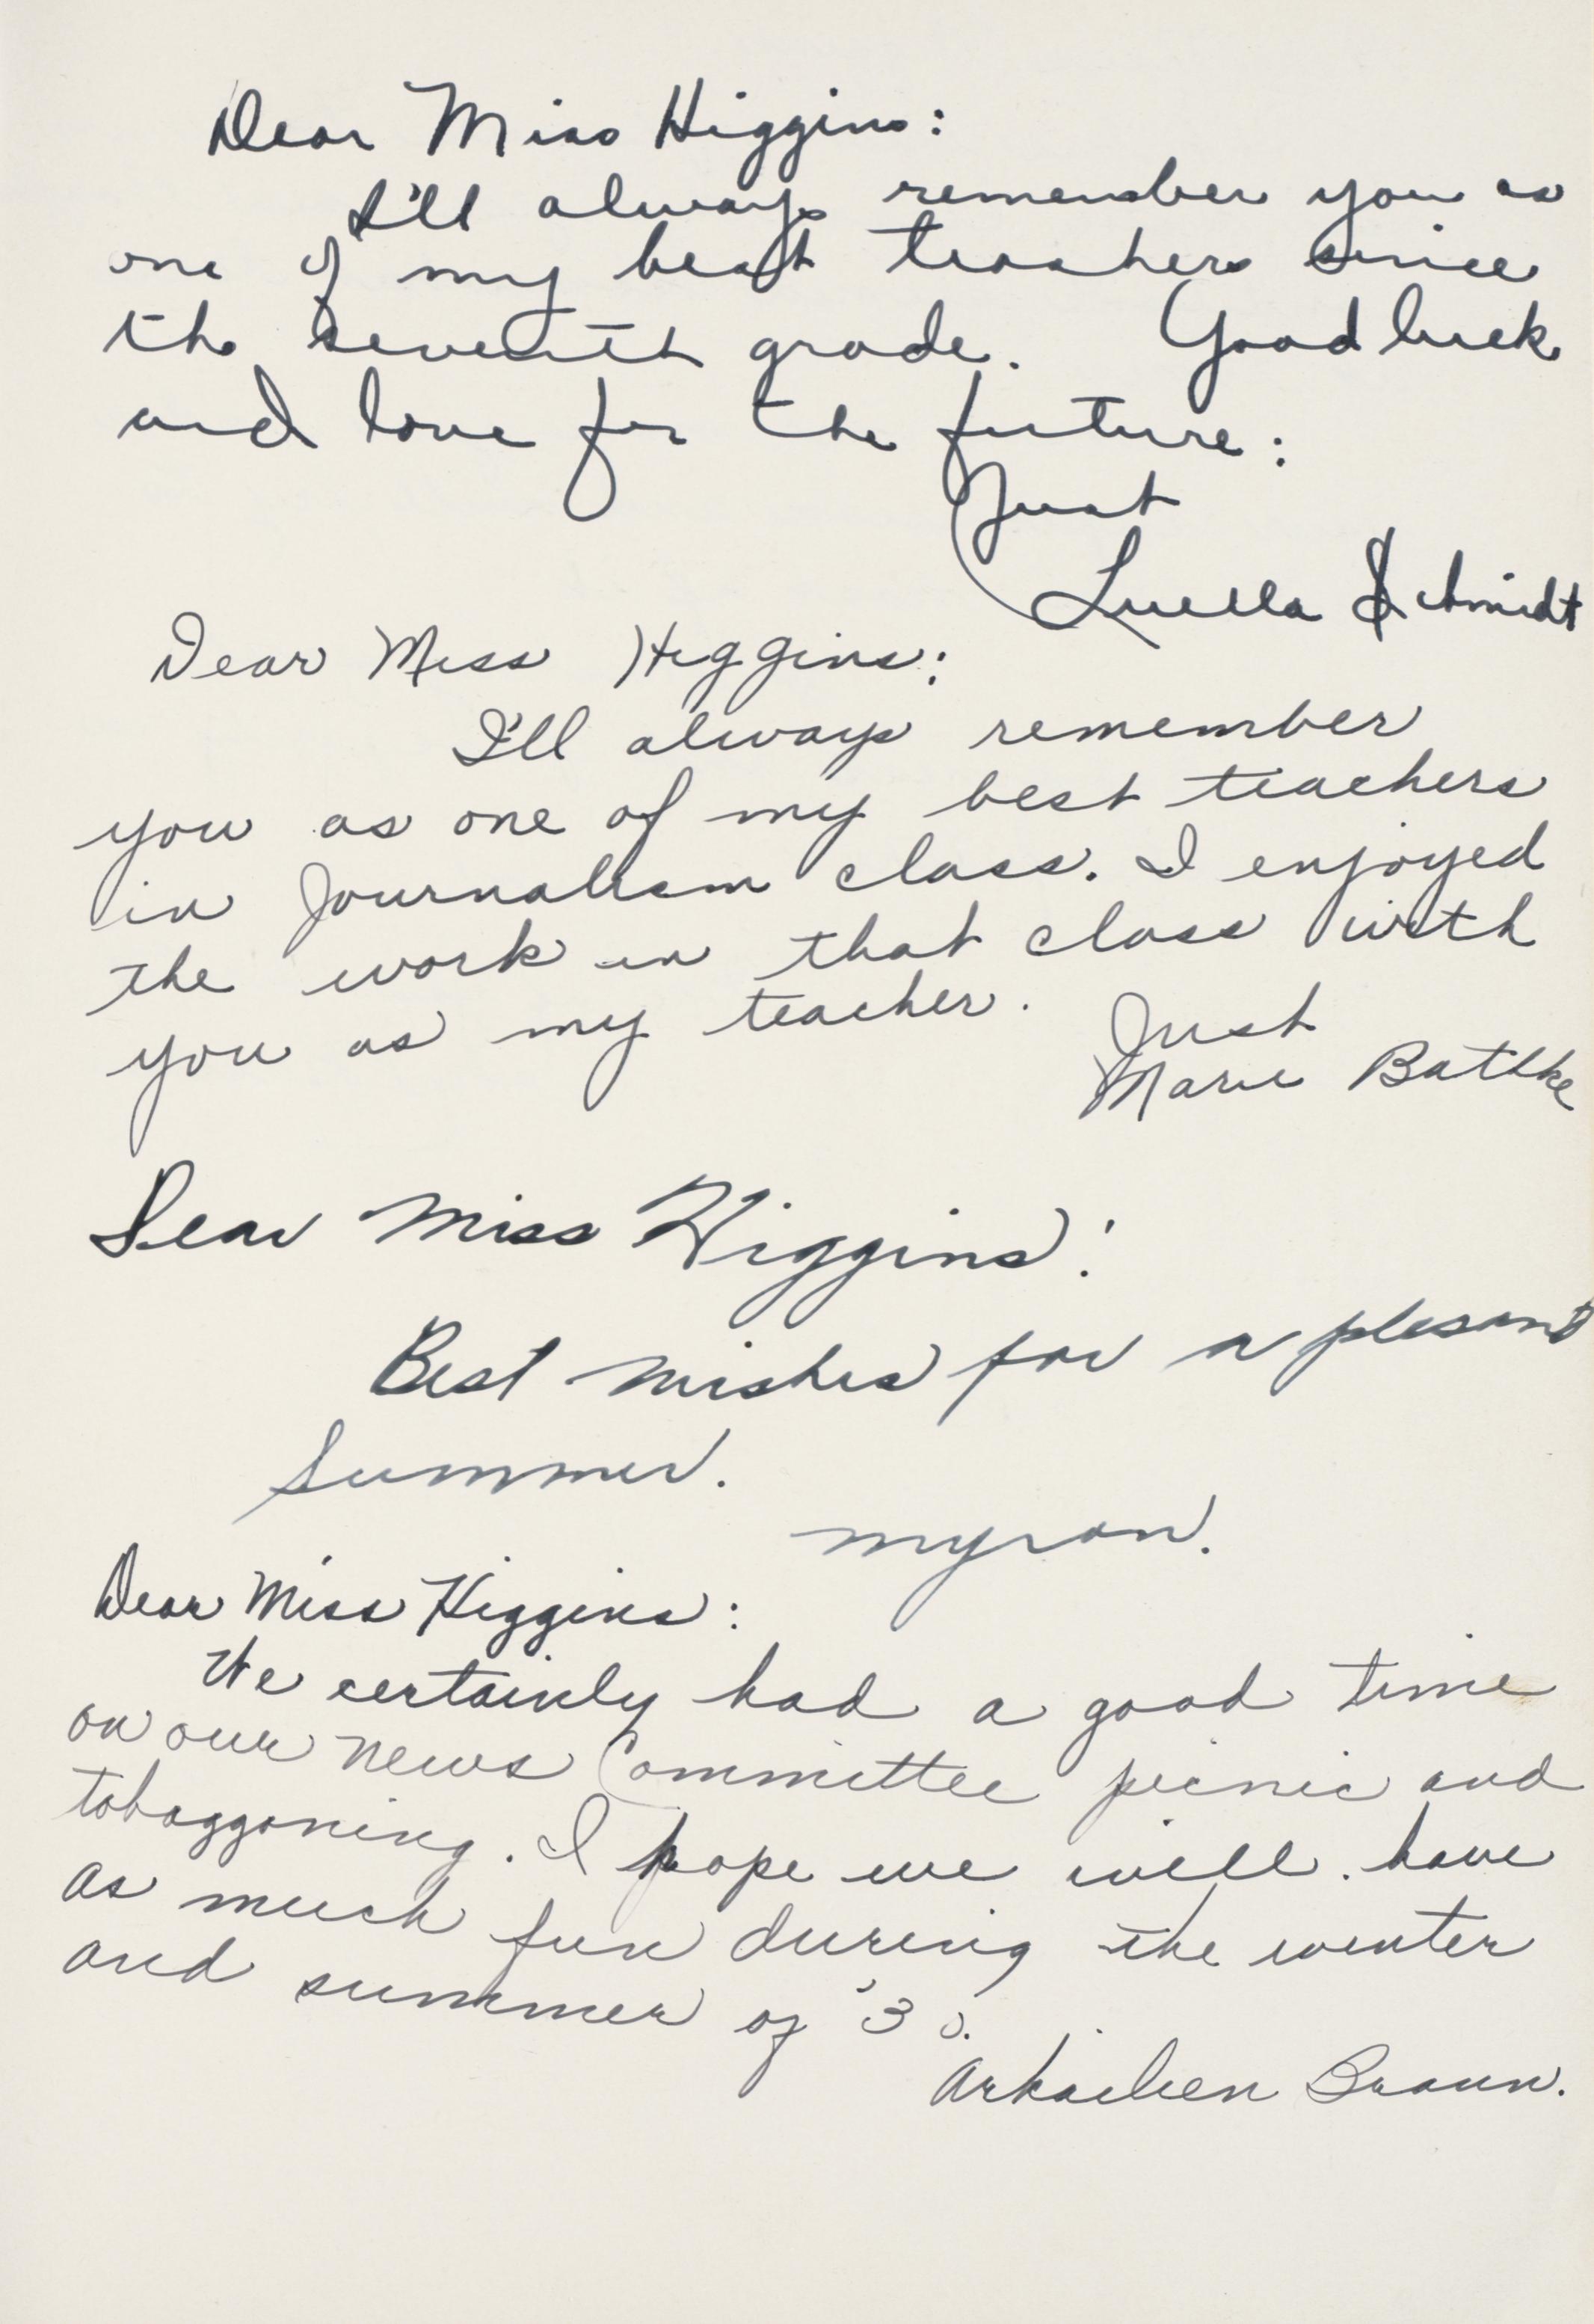 Dear Miss Higgins:
I'll always remember you as
one of my best teachers since
the seventh grade. Good luck
and love for the future:
Just
Luella Schmidt
Dear Miss Higgins:
I'll always remember
you as one of my best teachers
in Journalism class. I enjoyed
the work in that class with
you as my teacher.
Just
Marie Bathke
Dear Miss Higgins:
Best wishes for a plesant
summer.
Myron.
Dear Miss Higgins:
We certainly had a good time
on our news Committee picnic and
tobaggoning. I hope we will have
as much fun during the winter
and summer of '30.
Braun.